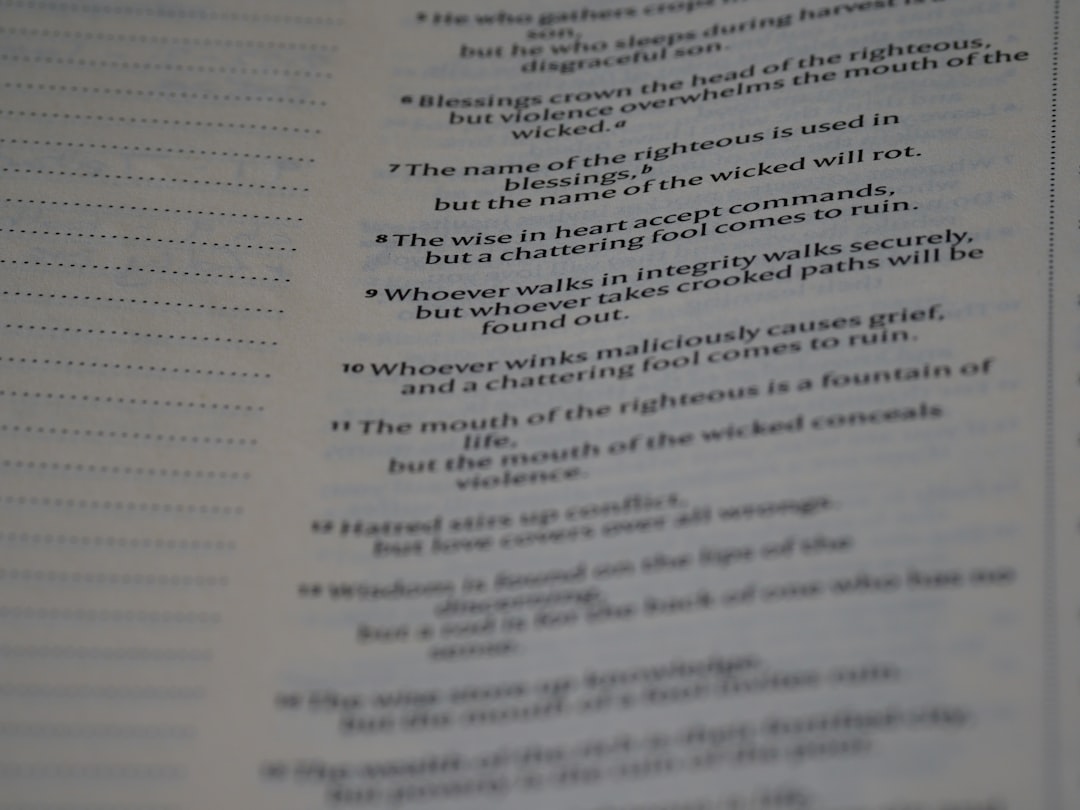 5 He who gathers crops
son,
but he who sleeps during harvest is a
disgraceful son.
6 Blessings crown the head of the righteous,
but violence overwhelms the mouth of the
wicked. a
7 The name of the righteous is used in
blessings, b
but the name of the wicked will rot.
8 The wise in heart accept commands,
but a chattering fool comes to ruin.
9 Whoever walks in integrity walks securely,
but whoever takes crooked paths will be
found out.
10 Whoever winks maliciously causes grief,
and a chattering fool comes to ruin.
11 The mouth of the righteous is a fountain of
life,
but the mouth of the wicked conceals
violence.
12 Hatred stirs up conflict,
but love covers over all wrongs.
13 Wisdom is found on the lips of the
discerning,
but a rod is for the back of one who has no
sense.
14 The wise store up knowledge,
but the mouth of a fool invites ruin.